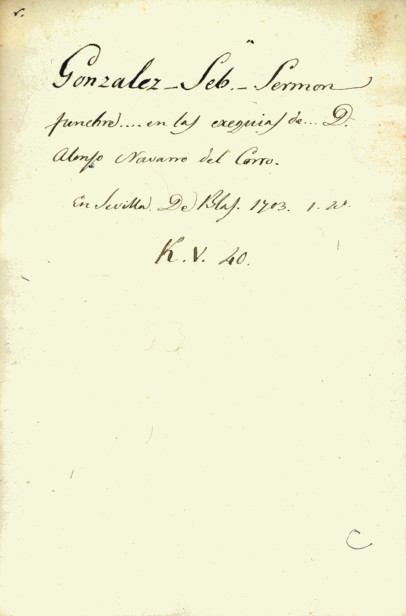 Gonzalez_Seb.n_Sermon
funebre.... en las exequias de... D.
Alonso Navarro del Corro.
En Sevilla. De Blas. 1703. 1. v.
K. V. 40.
C